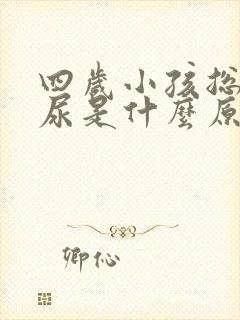 四歲小孩总
尿是什麼原
卿伈